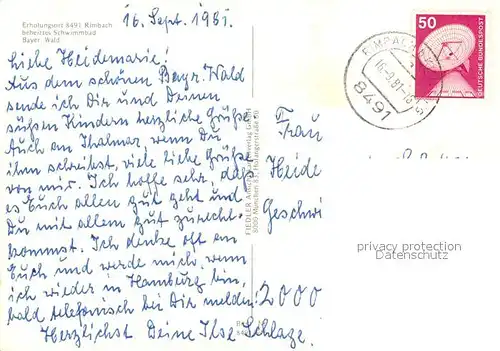 16. Sept. 1981.
Erholungsort 8491 Rimbach
beheiztes Schwimmbad
Bayer. Wald
Liebe Heidemarie!
Aus dem schönen Bayr. Wald
sende ich Dir und Deinen
süßen Kindern herzliche Grüße
Auch an Thalmar wenn Du
ihm schreibst, viele liebe Grüße
von mir. Ich hoffe sehr, daß
es Euch allen gut geht und
Du mit allem gut zurecht-
kommst. Ich denke oft an
Euch und werde mich, wenn
ich wieder in Hamburg bin,
bald telefonisch bei Dir melden.
Herzlichst Deine Ilse Schlage.
FIEDLER
8000 München 83
50
DEUTSCHE BUNDESPOST
RIMBACH
16.-9.81-18
8491
Frau
Heide
Geschwi
2000
privacy protection
Datenschutz